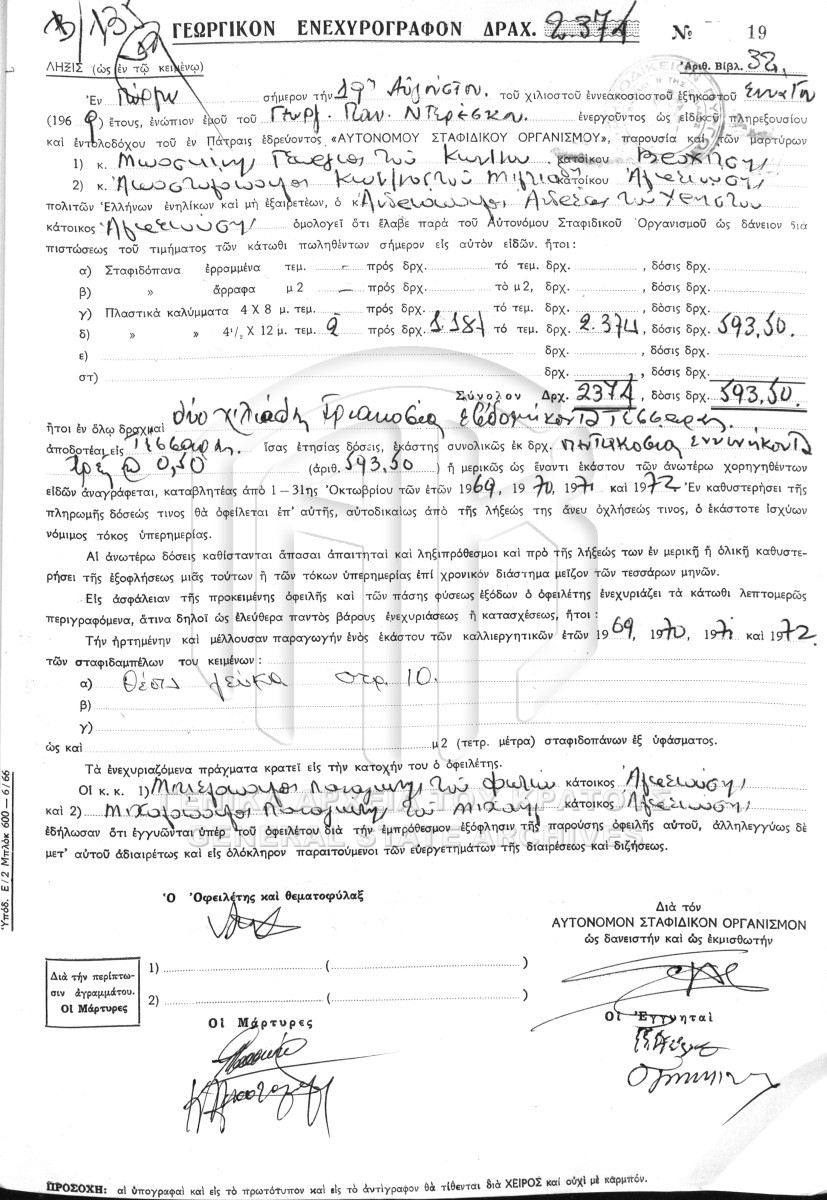 ΓΕΩΡΓΙΚΟΝ ΕΝΕΧΥΡΟΓΡΑΦΟΝ ΔΡΑΧ. 2.374 № 19
ΛΗΞΙΣ (ὡς ἐν τῷ κειμένῳ) Ἀριθ. Βίβλ. 32.
Ἐν Πύργῳ σήμερον τὴν 19ην Αὐγούστου. τοῦ χιλιοστοῦ ἐννεακοσιοστοῦ ἑξηκοστοῦ ἐννάτου
(196 9) ἔτους, ἐνώπιον ἐμοῦ τοῦ Παν. ἐνεργοῦντος ὡς εἰδικοῦ πληρεξουσίου
καὶ ἐντολοδόχου τοῦ ἐν Πάτραις ἑδρεύοντος «ΑΥΤΟΝΟΜΟΥ ΣΤΑΦΙΔΙΚΟΥ ΟΡΓΑΝΙΣΜΟΥ», παρουσίᾳ καὶ τῶν μαρτύρων
1) κ. Γεώργιος τοῦ Κων/νου κατοίκου
2) κ. Κων/νος τοῦ κατοίκου
πολιτῶν Ἑλλήνων ἐνηλίκων καὶ μὴ ἐξαιρετέων, ὁ κ. Ἀνδρέας τοῦ Χρήστου
κάτοικος ὁμολογεῖ ὅτι ἔλαβε παρὰ τοῦ Αὐτονόμου Σταφιδικοῦ Ὀργανισμοῦ ὡς δάνειον διὰ
πιστώσεως τοῦ τιμήματος τῶν κάτωθι πωληθέντων σήμερον εἰς αὐτὸν εἰδῶν. ἤτοι:
α) Σταφιδόπανα ἐρραμμένα τεμ. – πρὸς δρχ. τὸ τεμ. δρχ. , δόσις δρχ.
β) » ἄρραφα μ2 – πρὸς δρχ. τὸ μ2, δρχ. , δόσις δρχ.
γ) Πλαστικὰ καλύμματα 4 Χ 8 μ. τεμ. πρὸς δρχ. τὸ τεμ. δρχ. , δόσις δρχ.
δ) » » 4¹/₂ Χ 12 μ. τεμ. 2 πρὸς δρχ. 1.187 τὸ τεμ. δρχ. 2.374, δόσις δρχ. 593,50.
ε) δρχ. , δόσις δρχ.
στ) δρχ. , δόσις δρχ.
Σύνολον Δρχ. 2374, δόσις δρχ. 593,50.
ἤτοι ἐν ὅλῳ δραχμαὶ δύο χιλιάδες τριακόσιαι ἑβδομήκοντα τέσσαρες.
ἀποδοτέαι εἰς τέσσαρες. ἴσας ἐτησίας δόσεις, ἑκάστης συνολικῶς ἐκ δρχ. πεντακόσιαι ἐννενήκοντα
τρεῖς @ 0,50 (ἀριθ. 593,50) ἢ μερικῶς ὡς ἔναντι ἑκάστου τῶν ἀνωτέρω χορηγηθέντων
εἰδῶν ἀναγράφεται, καταβλητέας ἀπὸ 1—31ης Ὀκτωβρίου τῶν ἐτῶν 1969, 1970, 1971 καὶ 1972 Ἐν καθυστερήσει τῆς
πληρωμῆς δόσεώς τινος θὰ ὀφείλεται ἐπ' αὐτῆς, αὐτοδικαίως ἀπὸ τῆς λήξεώς της ἄνευ ὀχλήσεώς τινος, ὁ ἑκάστοτε ἰσχύων
νόμιμος τόκος ὑπερημερίας.
Αἱ ἀνωτέρω δόσεις καθίστανται ἅπασαι ἀπαιτηταὶ καὶ ληξιπρόθεσμοι καὶ πρὸ τῆς λήξεώς των ἐν μερικῇ ἢ ὁλικῇ καθυστε-
ρήσει τῆς ἐξοφλήσεως μιᾶς τούτων ἢ τῶν τόκων ὑπερημερίας ἐπὶ χρονικὸν διάστημα μεῖζον τῶν τεσσάρων μηνῶν.
Εἰς ἀσφάλειαν τῆς προκειμένης ὀφειλῆς καὶ τῶν πάσης φύσεως ἐξόδων ὁ ὀφειλέτης ἐνεχυριάζει τὰ κάτωθι λεπτομερῶς
περιγραφόμενα, ἅτινα δηλοῖ ὡς ἐλεύθερα παντὸς βάρους ἐνεχυριάσεως ἢ κατασχέσεως, ἤτοι:
Τὴν ἠρτημένην καὶ μέλλουσαν παραγωγὴν ἑνὸς ἑκάστου τῶν καλλιεργητικῶν ἐτῶν 1969, 1970, 1971 καὶ 1972.
τῶν σταφιδαμπέλων του κειμένων:
α) θέσις Λεύκα στρ. 10.
β)
γ)
ὡς καὶ μ2 (τετρ. μέτρα) σταφιδοπάνων ἐξ ὑφάσματος.
Τὰ ἐνεχυριαζόμενα πράγματα κρατεῖ εἰς τὴν κατοχήν του ὁ ὀφειλέτης.
Οἱ κ.κ. 1) τοῦ κάτοικος
καὶ 2) τοῦ κάτοικος
ἐδήλωσαν ὅτι ἐγγυῶνται ὑπὲρ τοῦ ὀφειλέτου διὰ τὴν ἐμπρόθεσμον ἐξόφλησιν τῆς παρούσης ὀφειλῆς αὐτοῦ, ἀλληλεγγύως δὲ
μετ' αὐτοῦ ἀδιαιρέτως καὶ εἰς ὁλόκληρον παραιτούμενοι τῶν εὐεργετημάτων τῆς διαιρέσεως καὶ διζήσεως.
ΓΕΝΙΚΑ ΑΡΧΕΙΑ ΤΟΥ ΚΡΑΤΟΥΣ
GENERAL STATE ARCHIVES
Ὁ Ὀφειλέτης καὶ θεματοφύλαξ
Διὰ τὸν
ΑΥΤΟΝΟΜΟΝ ΣΤΑΦΙΔΙΚΟΝ ΟΡΓΑΝΙΣΜΟΝ
ὡς δανειστὴν καὶ ὡς ἐκμισθωτήν
Διὰ τὴν περίπτω-
σιν ἀγραμμάτου.
Οἱ Μάρτυρες
1) ( )
2) ( )
Οἱ Μάρτυρες
Οἱ Ἐγγυηταὶ
Ὑπόδ. Ε/2 Μπλὸκ 600—6/66
ΠΡΟΣΟΧΗ: αἱ ὑπογραφαὶ καὶ εἰς τὸ πρωτότυπον καὶ εἰς τὸ ἀντίγραφον θὰ τίθενται διὰ ΧΕΙΡΟΣ καὶ οὐχὶ μὲ καρμπόν.